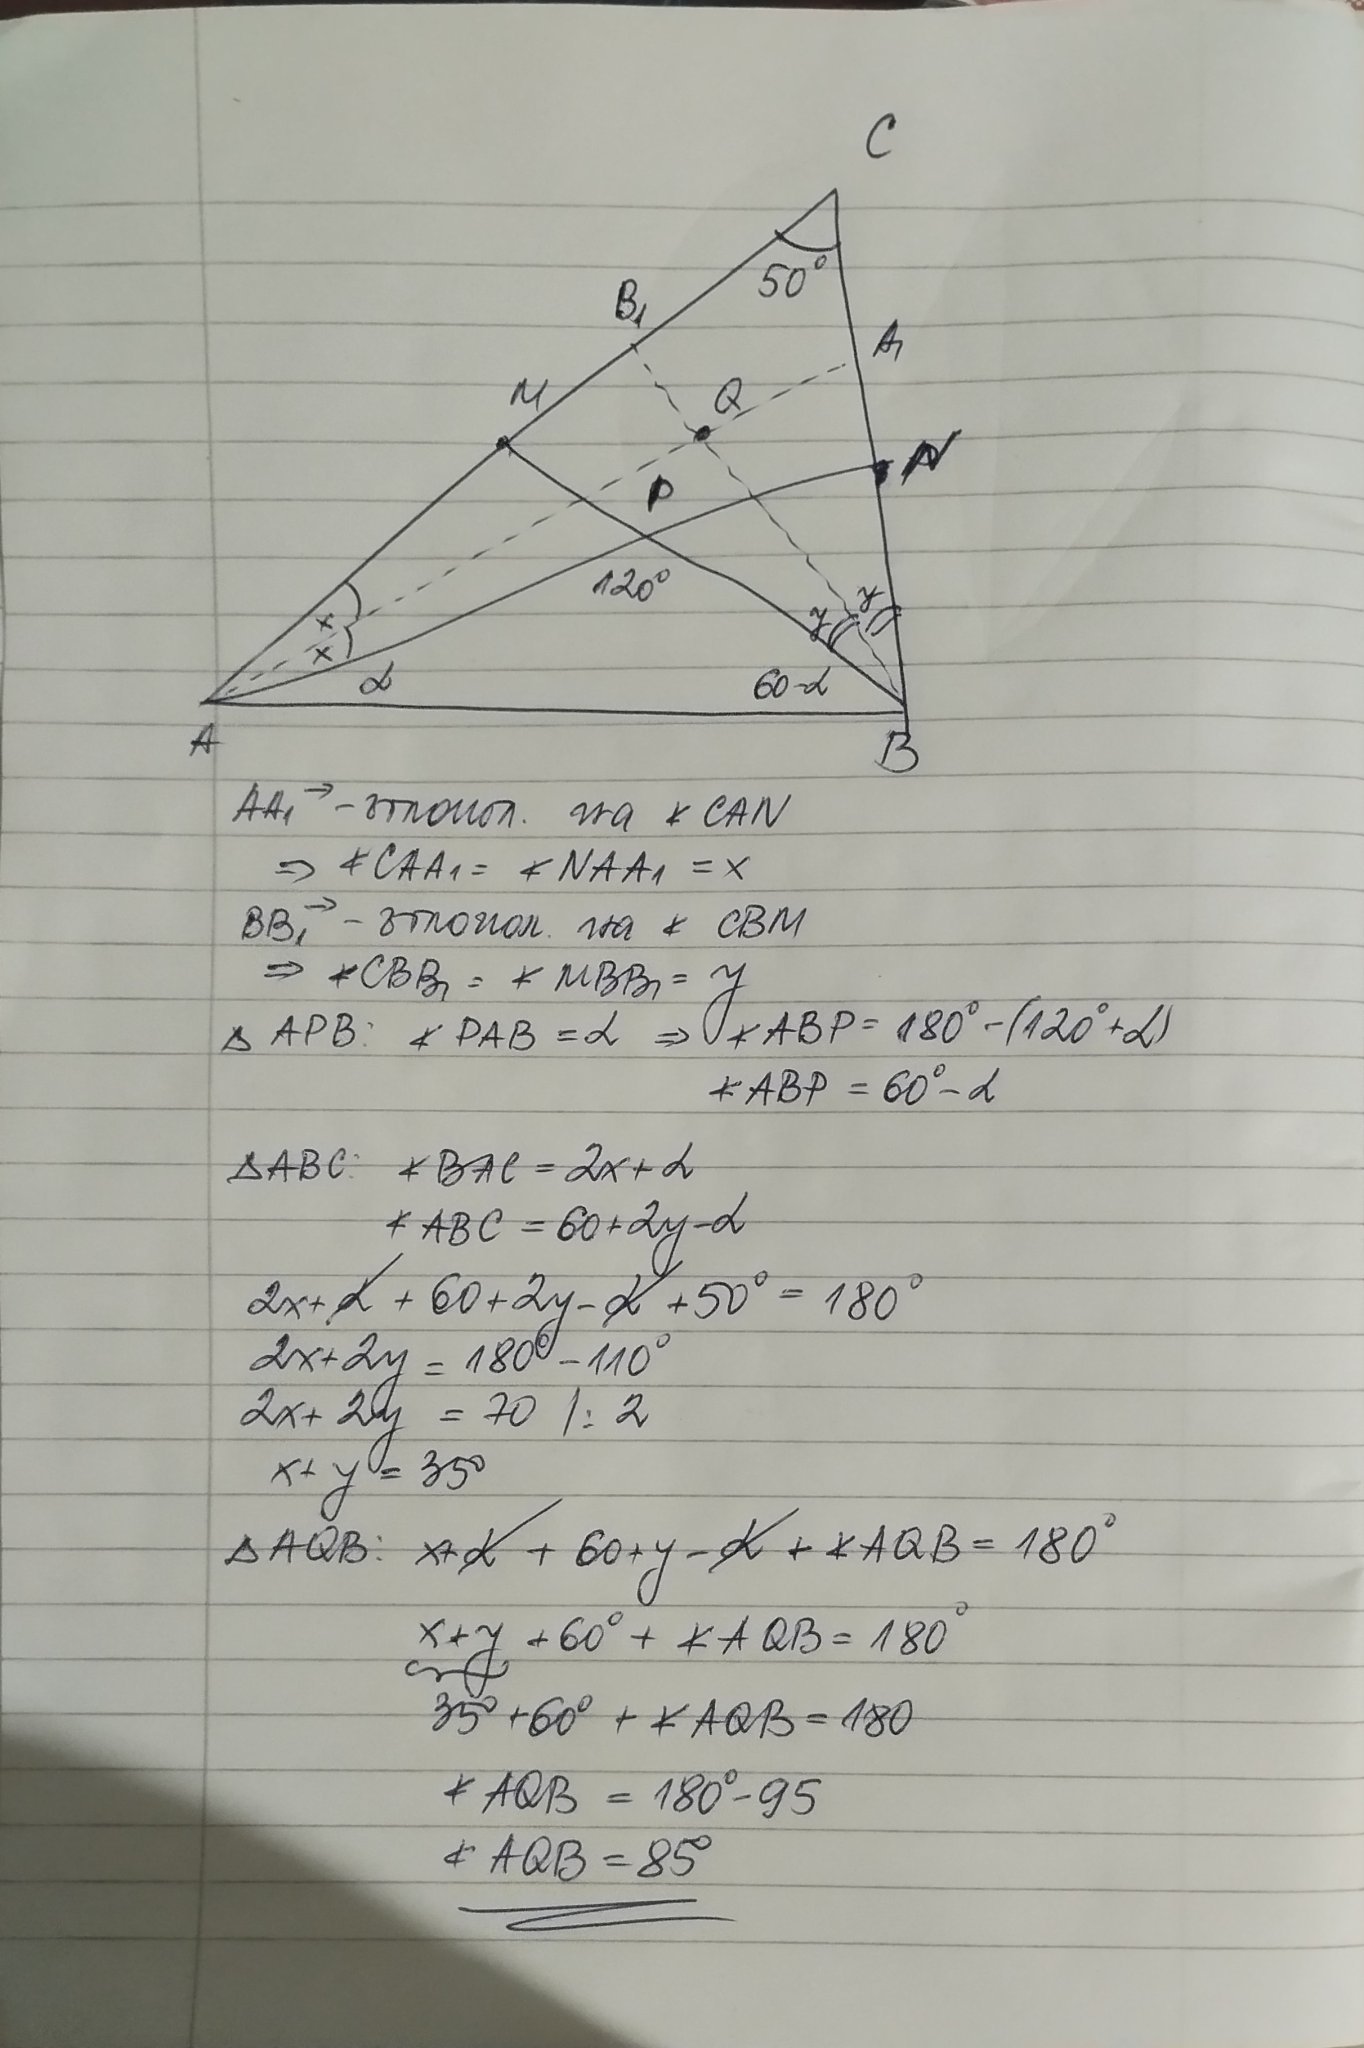 C
50°
B₁
A₁
M
Q
N
P
120°
y
y
x
x
α
60-α
A
B
AA₁→ - ъглопол. на ∢ CAN
⇒ ∢CAA₁ = ∢NAA₁ = x
BB₁→ - ъглопол. на ∢ CBM
⇒ ∢CBB₁ = ∢ MBB₁ = y
△ APB: ∢ PAB = α ⇒ ∢ABP = 180° - (120° + α)
∢ABP = 60° - α
△ABC: ∢BAC = 2x + α
∢ABC = 60 + 2y - α
2x + α + 60 + 2y - α + 50° = 180°
2x + 2y = 180° - 110°
2x + 2y = 70 /: 2
x + y = 35°
△AQB: x + α + 60 + y - α + ∢AQB = 180°
x + y + 60° + ∢AQB = 180°
35° + 60° + ∢AQB = 180
∢AQB = 180° - 95
∢AQB = 85°